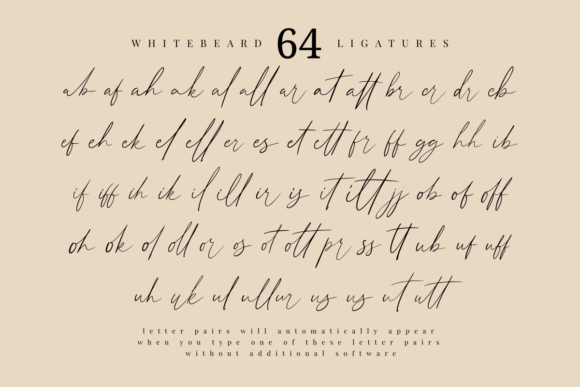 WHITEBEARD 64 LIGATURES
ab af ah ak al all ar at att br cr dr eb
ef eh ek el ell er es et ett fr ff gg hh ib
if iff ih ik il ill ir is it itt jj ob of off
oh ok ol oll or os ot ott pr ss tt ub uf uff
uh uk ul ull ur us us ut utt
letter pairs will automatically appear
when you type one of these letter pairs
without additional software